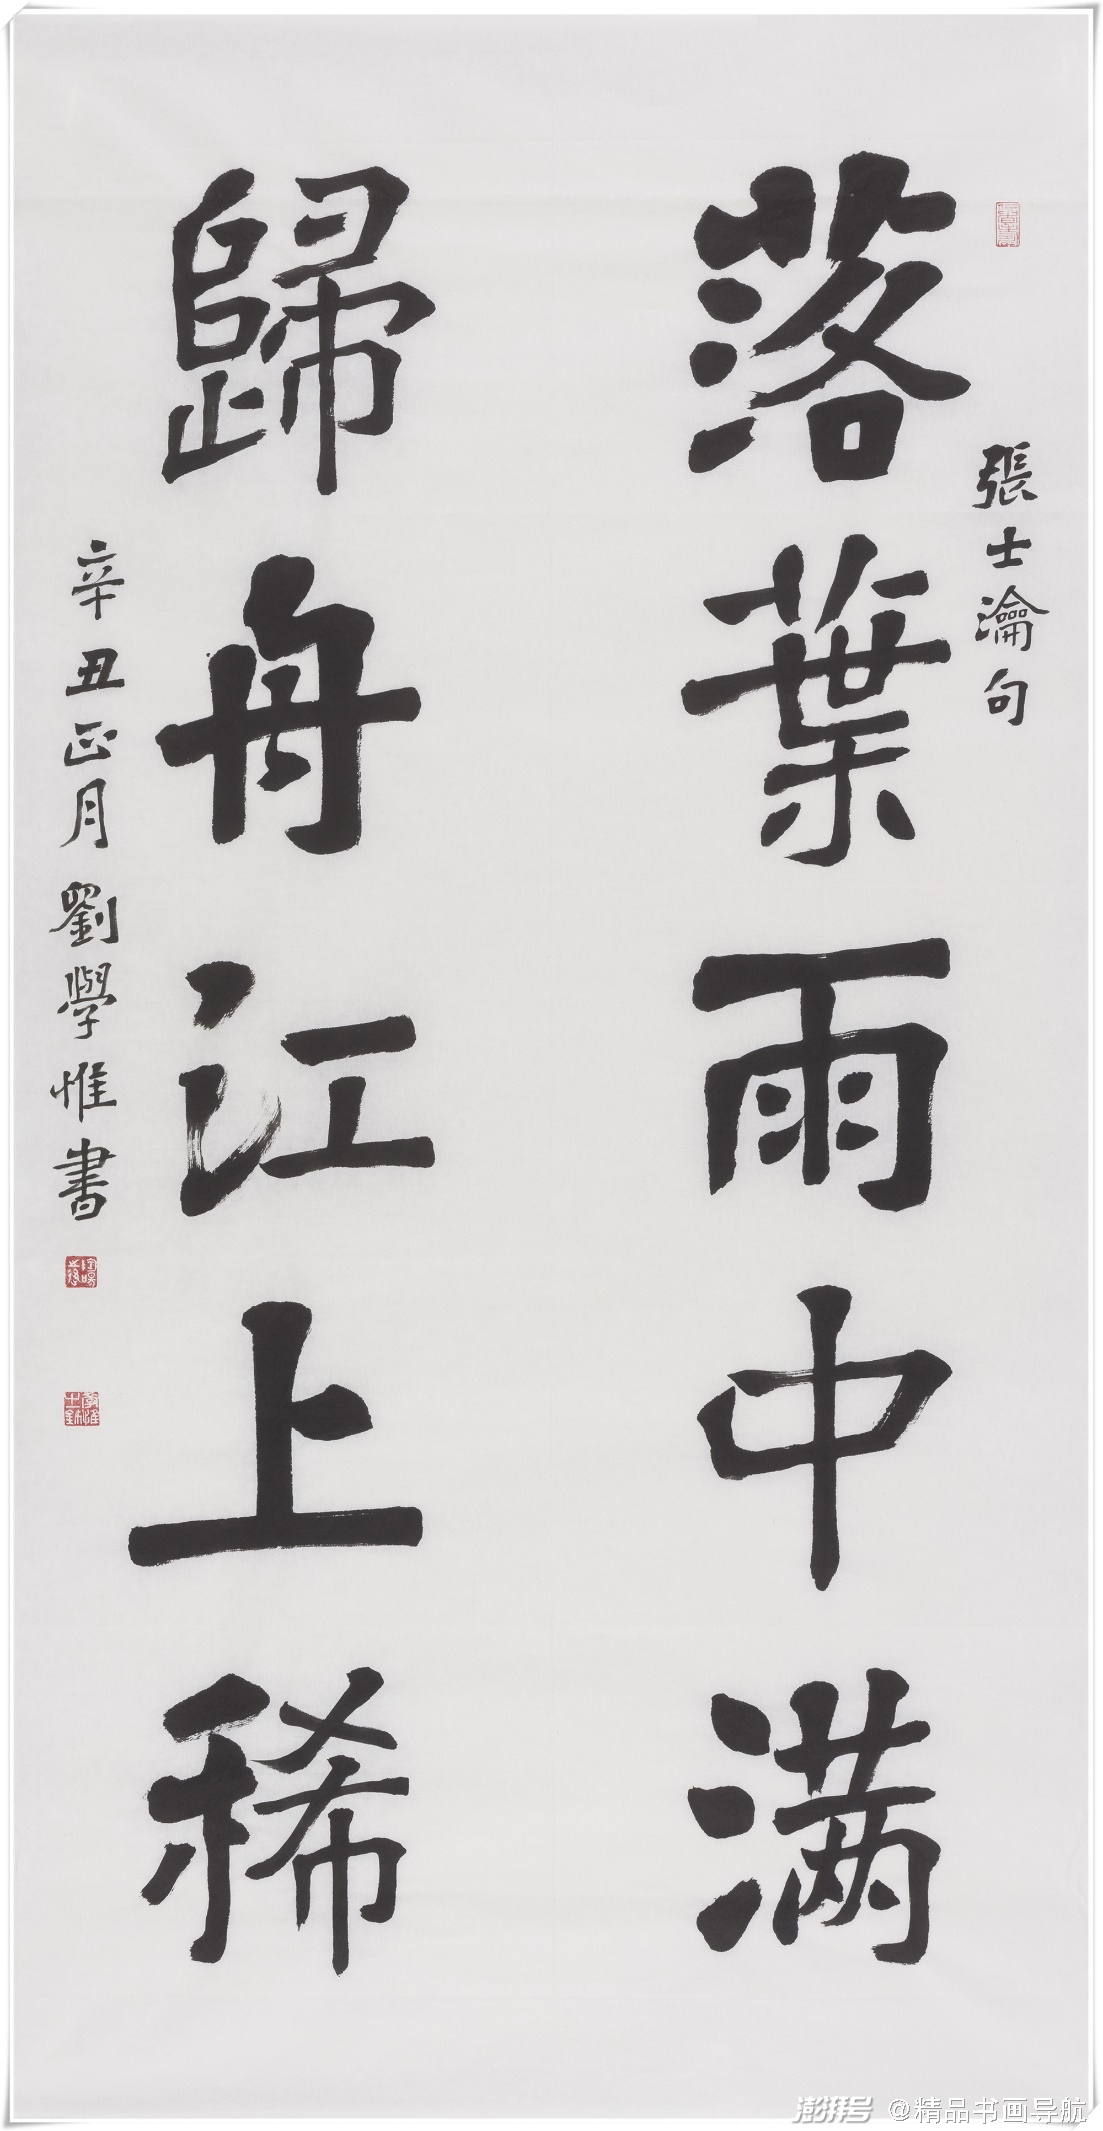 張士瀹句
落葉雨中满
歸舟江上稀
辛丑正月劉學惟書
澎湃号 @精品书画导航